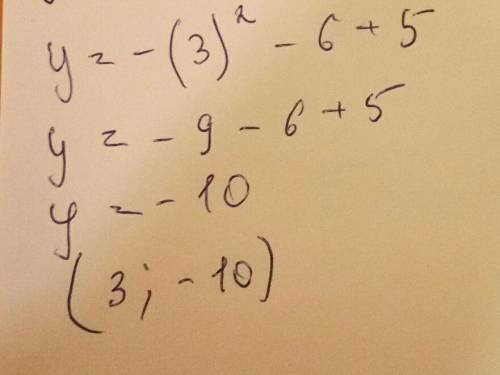 y = -(3)² - 6 + 5
y = -9 - 6 + 5
y = -10
(3; -10)